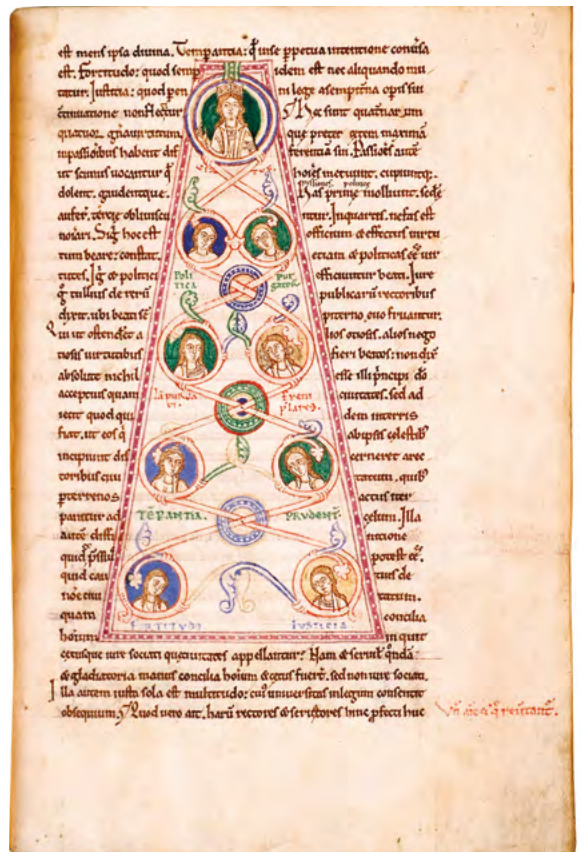 est mens ipsa divina. Temp̄antia: q̄ in se ꝑpetua intentione conūsa
est. Fortitudo: quod semꝑ idem est nec aliquando mu
tatur. Justicia: quod ꝑenni lege a sempit̄na opis sui
continuatione non flectitur. Hec sunt quat̄nar̄um
quatuor gn̄a uirtutum que preter cetera maximā
in passionibus habent differentiā sui. Passiōes autē
ut scimus uocantur q̄ hoīes metuunt, cupiuntq;
dolent, gaudentque. Has prime molliunt. secde
auferunt, tercie obliuiscuntur. In quartis nefas est
noīari. Si g̊ hoc est officium & effectus uirtu
tum beare: constat etiam & politicas eē uir
tutes. Ig̊ & politicis efficiuntur beati. Jure
g̊ tullius de rerū publicarū rectoribus
dixit. ubi beati euo sempiterno fruantur.
Qui ut ostenderet alios otiosis. alios nego
tiosis uirtutibus fieri beatos: non dix̄
absolute nichil esse illi principi dō
acceptius quam ciuitates. sed ad
iecit quod quidem in terris
fiat. ut eos q̄ ab ipsis celestib'
incipiunt discerneret a rec
toribus ciuitatum, quib'
ꝑ terrenos actus iter
paratur ad celum. Illa
autē diffinitione
quid p̄ssius potest eē.
quid cautius de
noīe ciuitatum.
quam concilia
hoīum inquit
cetusque iure sociati que ciuitates appellantur? Nam & seruilis q̄ndā
& gladiatoria manus concilia hoīum & cetus fuere. sed non iure sociati.
Illa autem iusta sola est multitudo: cuī uniuersitas in legum consentit
obsequium. Quod uero ait. harū rectores & seruatores hinc ꝓfecti huc
POLITICA
PURGATOR̄
TĒPANTIA.
PRUDENT̄.
FORTITUDO
IUSTICIA